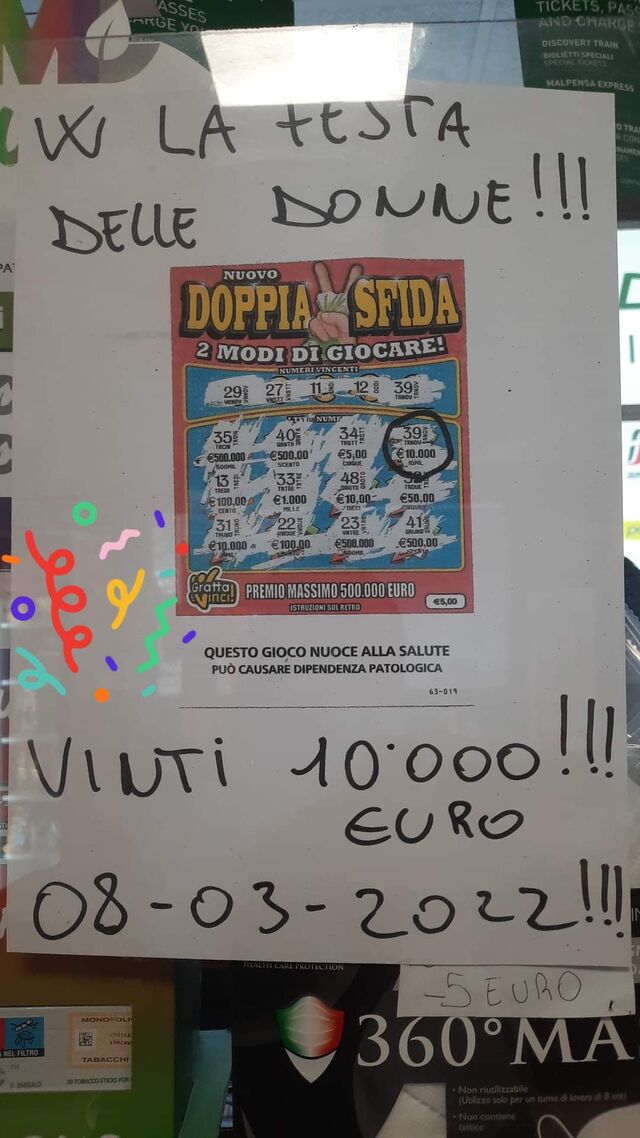 ASSES
TICKETS, PAS
AND CHARGE
DISCOVERY TRAIN
BIGLIETTI SPECIALI
SPECIAL TICKETS
MALPENSA EXPRESS
W LA FESTA
DELLE DONNE!!!
NUOVO
DOPPIA SFIDA
2 MODI DI GIOCARE!
NUMERI VINCENTI
29 27 11 12 39
35 40 34 39
€500.000 €500,00 €5,00 €10.000
13 33 48
€100,00 €1.000 €10,00 €50,00
31 22 23 41
€10.000 €100,00 €500.000 €500,00
Gratta e Vinci!
PREMIO MASSIMO 500.000 EURO
ISTRUZIONI SUL RETRO
€5,00
QUESTO GIOCO NUOCE ALLA SALUTE
PUÒ CAUSARE DIPENDENZA PATOLOGICA
63-019
VINTI 10.000!!!
EURO
08-03-2022!!!
-5 EURO
HEALTH CARE PROTECTION
360°MA
• Non riutilizzabile
(Utilizzo solo per un turno di lavoro di 8 ore)
• Non contiene
lattice
NEL FILTRO
MONOPOLI
TABACCHI